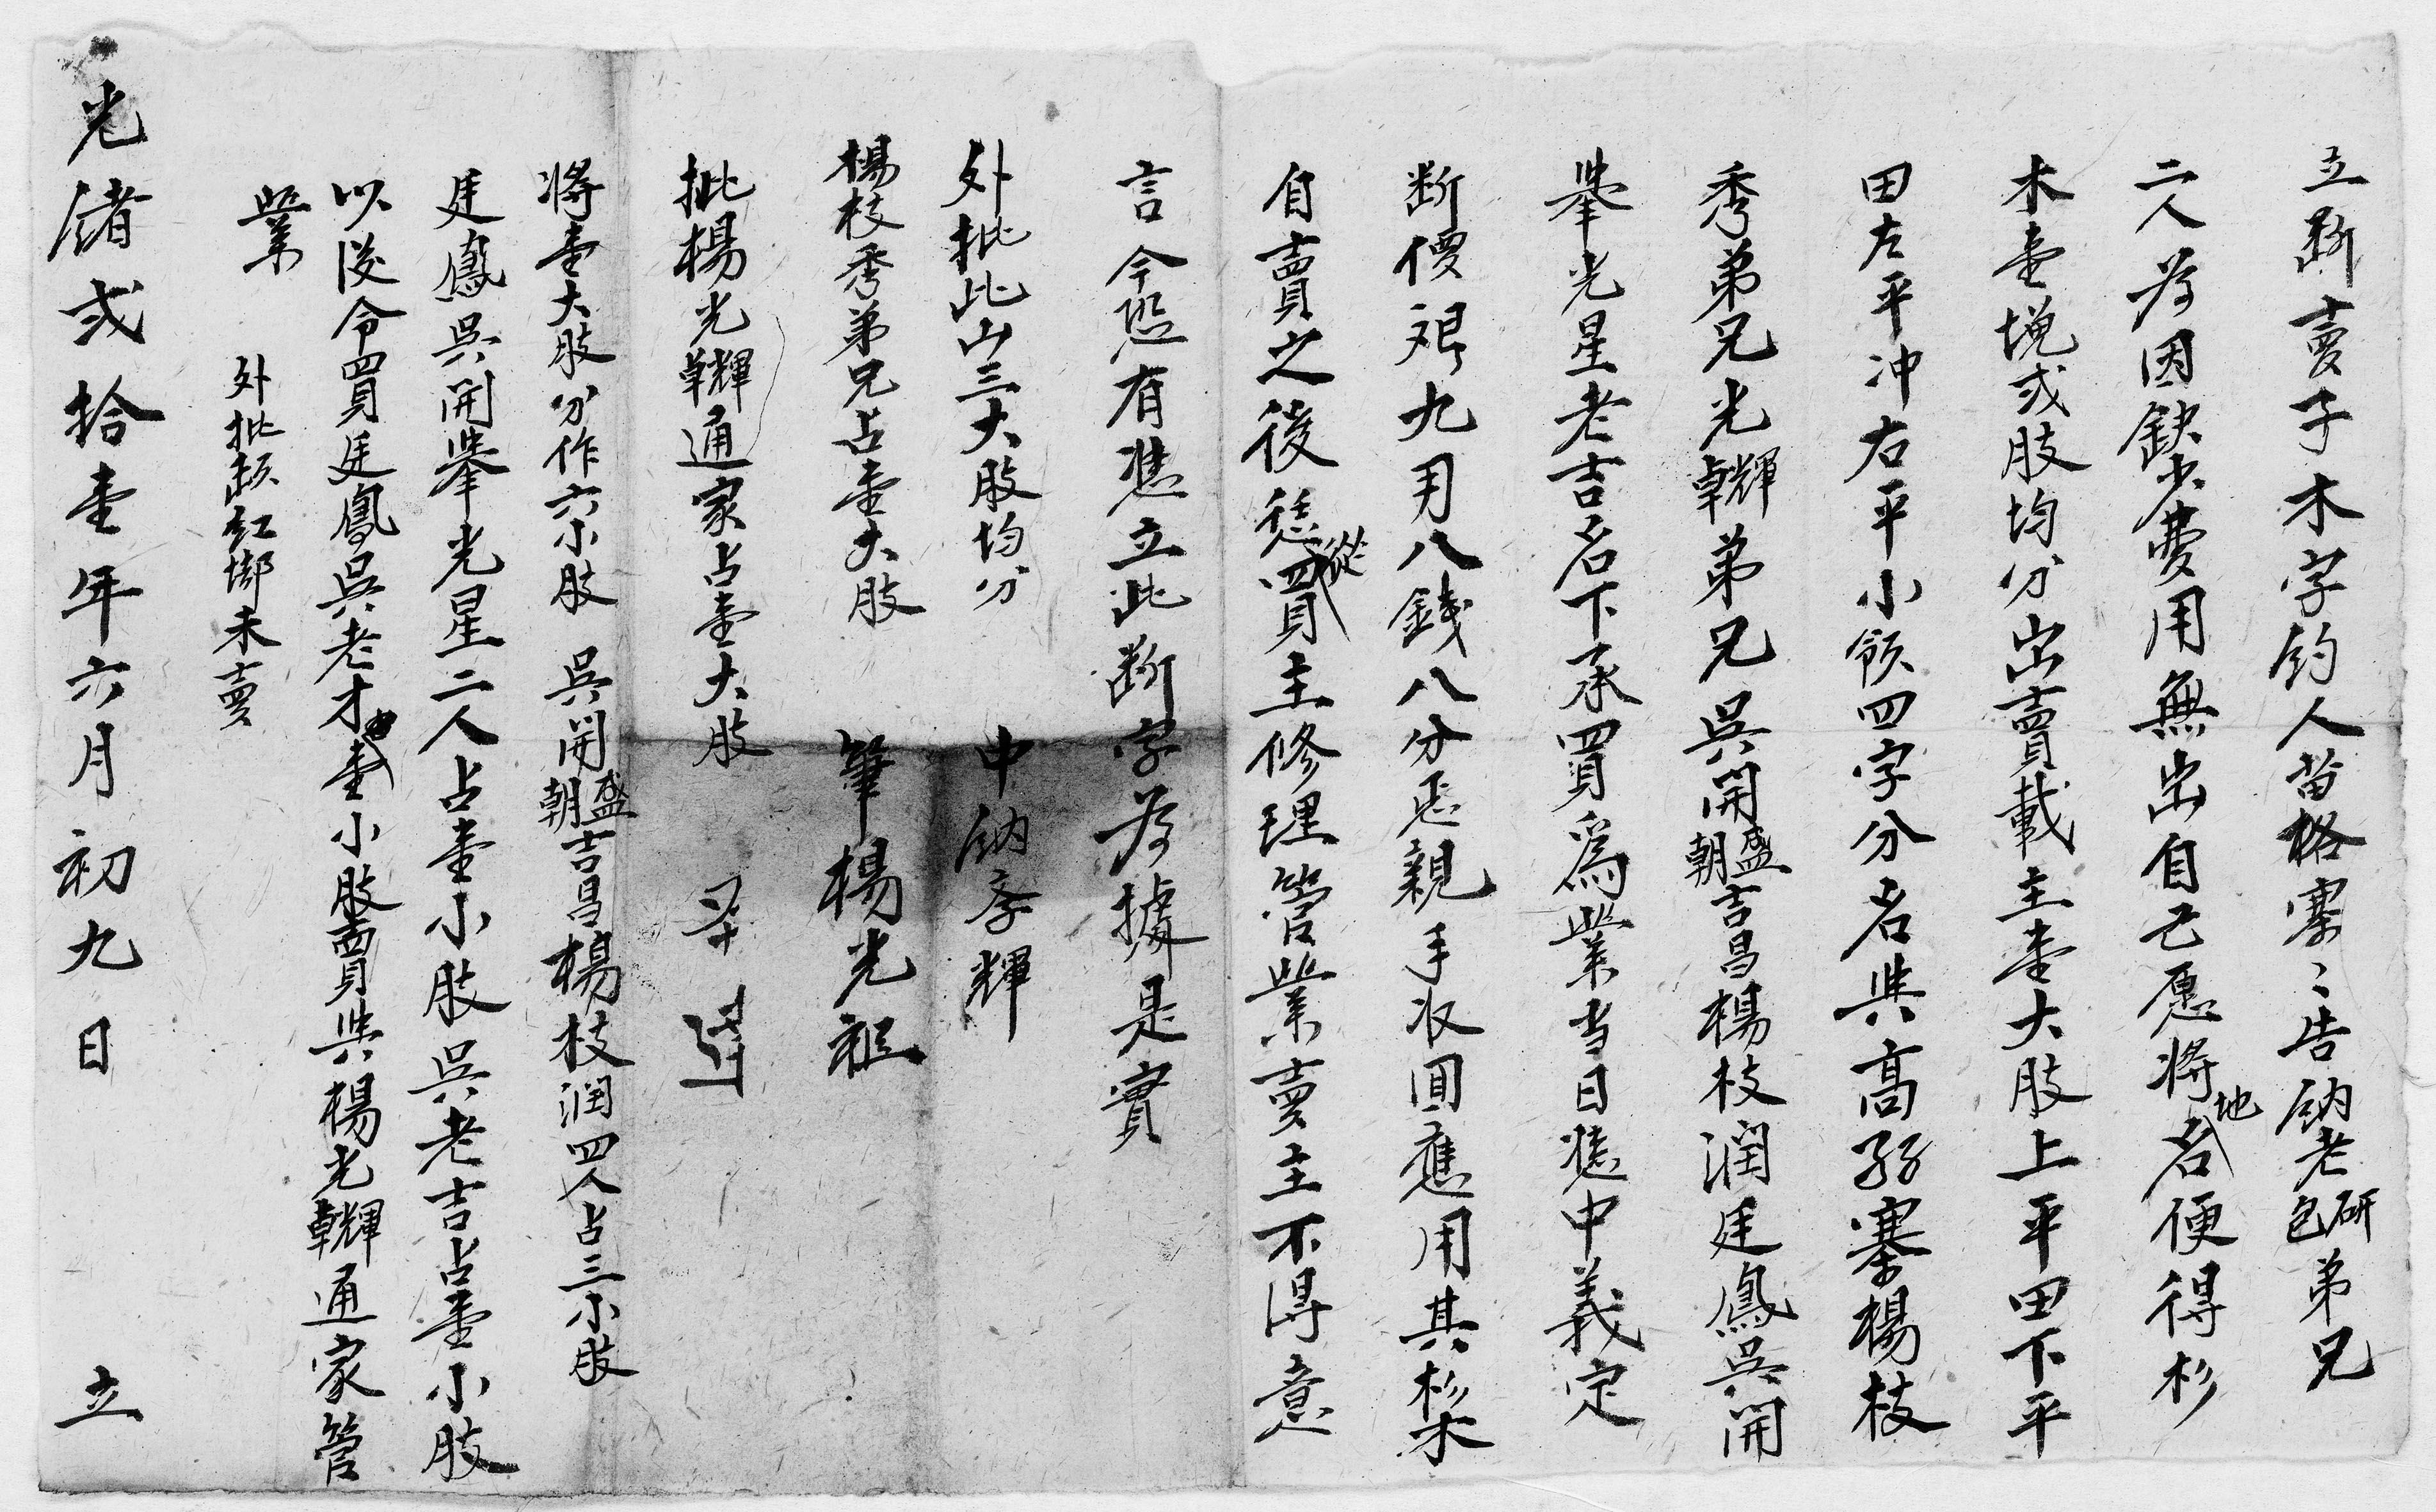 立断賣子木字約人苗格寨〻告納老研包弟兄
二人為因缺少費用無出自己愿將地名便得杉
木壹塊弍股均分出賣載主壹大股上平田下平
田左平冲右平小領四字分名與高孖寨楊枝
秀弟兄光輝韓弟兄吳開盛朝吉昌楊枝润廷鳳吳開
舉光星老吉名下承買爲業当日憑中義定
断價艮九用八錢八分正親手收回應用其杉木
自賣之後從買主修理管業賣主不得意
言今恐有憑立此断字為據是實
外批此山三大股均分　中納孝輝
楊枝秀弟兄占壹大股　筆楊光祖
批楊光輝韓通家占壹大股
將壹大股分作六小股吳開盛朝吉昌楊枝润四人占三小股
廷鳳吳開舉光星二人占壹小股吳老吉占壹小股
以後令買廷鳳吳老才壹小股賣與楊光輝韓通家管
業
外批栽紅㙛未賣
光緒弍拾壹年六月初九日　立